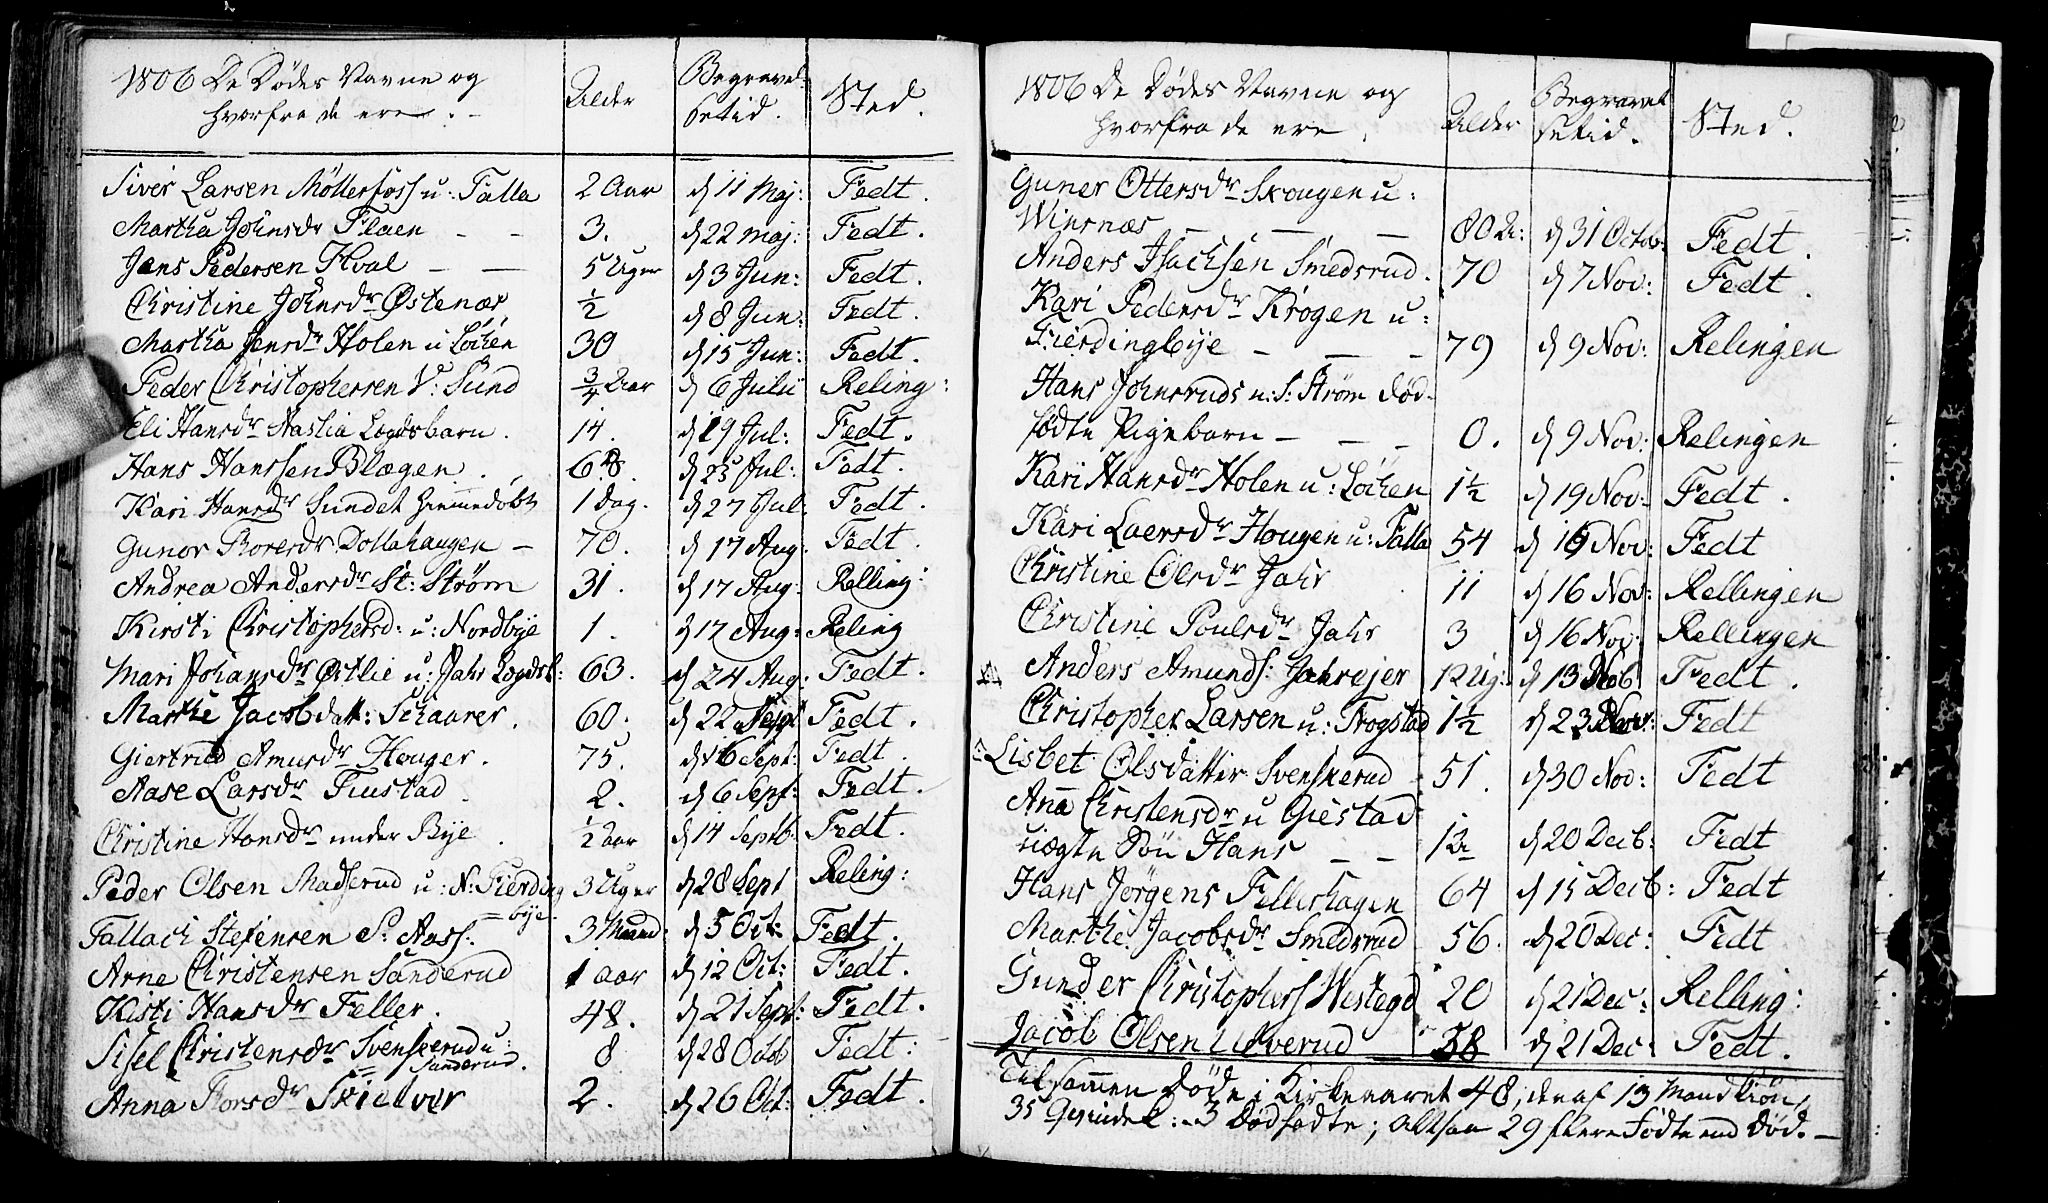 1806 De Dødes Navne og
hvorfra de ere. -
Alder
Begravel-
setid.
Sted.
Siver Larsen Möllerfoss u: Talla 2 Aar d 11 Maj: Fedt.
Martha Johnsdr Flaen - - 3. d 22 Maj: Fedt.
Jens Pedersen Hval - - 5 Uger d 3 Jun: Fedt.
Christine Johnsdr Østenær 1/2 d 8 Jun: Fedt.
Martha Jensdr Holen u Löchen 30 d 15 Jun: Fedt.
Peder Christophersen V: Sund 3/4 Aar d 6 Julii Reling:
Eli Hansdr Naslia Logdsbarn. 14. d 19 Jul: Fedt.
Hans Hanssen Blægen. 68. d 25 Jul: Fedt.
Kari Hansdr Sundet hiemmedöbt 1 Dag. d 27 Jul: Fedt.
Gunor Toresdr Dollahaugen - 70. d 17 Aug: Fedt.
Andrea Andersdr St: Ström 31. d 17 Aug: Relling:
Kirsti Christophersd: u: Nordbye 1. d 17 Aug: Reling
Mari Johansdr Østlie u: Jahr Logdsb: 63. d 24 Aug: Fedt.
Marthe Jacobdatt: Schaarer. 60. d 22 Sept Fedt.
Giertrud Amunsdr Houger. 75. d 16 Sept: Fedt.
Aase Larsdr Tiustad 2. d 6 Sept: Fedt.
Christine Hansdr under Bye. 1/2 aar d 14 Septb: Fedt.
Peder Olsen Madserud u: N: Fierding 3 Uger d 28 Sept Reling:
= bye.
Tallach Stefensen S: Aass: 3 Maaned: d 5 Oct: Fedt
Arne Christensen Sanderud 1 aar d 12 Oct: Fedt.
Kisti Hansdr Feller. 48. d 21 Sept: Fedt.
Sisel Christensdr Svenskerud u: 8 d 28 Octob Fedt:
Sanderud.
Anna Torsdr Skielver 2. d 26 Oct: Fedt.
1806 De Dødes Navne og
hvorfra de ere.
Alder
Begravel
setid.
Sted.
Guner Ottersdr Skougen u:
Wiernæs - - - 80 A: d 31 Octob: Fedt.
Anders Isachsen Smedsrud. 70 d 7 Nov: Fedt.
Kari Pedersdr Krogen u:
Fierdingbye - - - 79 d 9 Nov: Relingen
Hans Johnsruds u: S: Strøm död-
födte Pigebarn - - - 0. d 9 Nov: Relingen
Kari Hansdr Holen u: Löchen 1 1/2 d 19 Nov: Fedt.
Kari Laersdr Hougen u: Talla 54 d 16 Nov: Fedt
Christine Olsdr Jahr 11 d 16 Nov: Rellingen
Christine Poulsdr Jahr 3 d 16 Nov: Rellingen
Anders Amunds: Jahrejer 12 Ug: d 13 Fedt.
Christopher Larsen u: Trogstad 1 1/2 d 23 Nov: Fedt
Lisbet Olsdatter Svenskerud 51. d 30 Nov: Fedt
Aña Christensdr u Giestad
uægte Sön Hans - - 1 A d 20 Decb: Fedt
Hans Jörgens Fellishagen 64 d 15 Decb: Fedt
Marthe Jacobsdr Smedsrud 56. d 20 Dec: Fedt
Gunder Christophers Westegd 20 d 21 Dec: Relling:
Jacob Olsen Uverud 38 d 21 Dec: Fedt.
Tilsammen Döde i Kirkeaaret 48, deraf 13 Mandkiön,
35 Qvindek: 3 Dödfödte; altsaa 29 flere Födte end Död. -